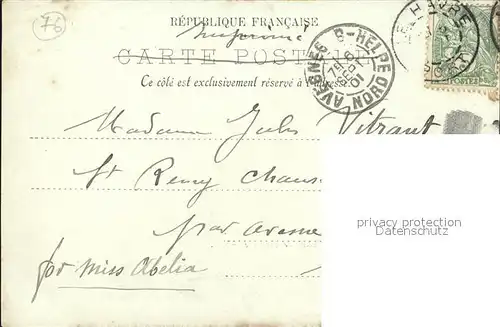 76
RÉPUBLIQUE FRANÇAISE
Imprimé
CARTE POSTALE
Ce côté est exclusivement réservé à l'adresse
LE HAVRE
AVESNES
POSTES
Madame Jules Vitrant
St Remy Chaus
par Avesne
for Miss Abélia
privacy protection
Datenschutz